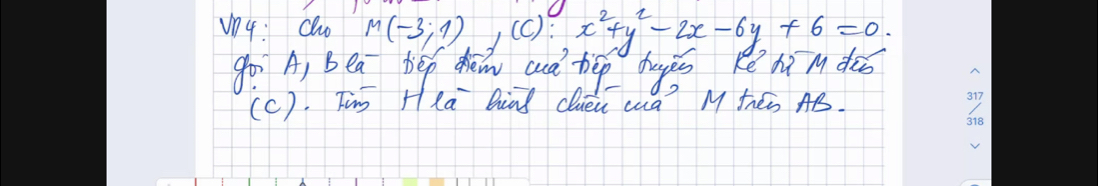 VD4: Cho M(-3;1), (C): x²+y²-2x-6y+6=0.
gọi A, B là tiếp điểm của tiếp tuyến kẻ từ M đến
(C). Tìm H là hình chiếu của M trên AB.
317
318